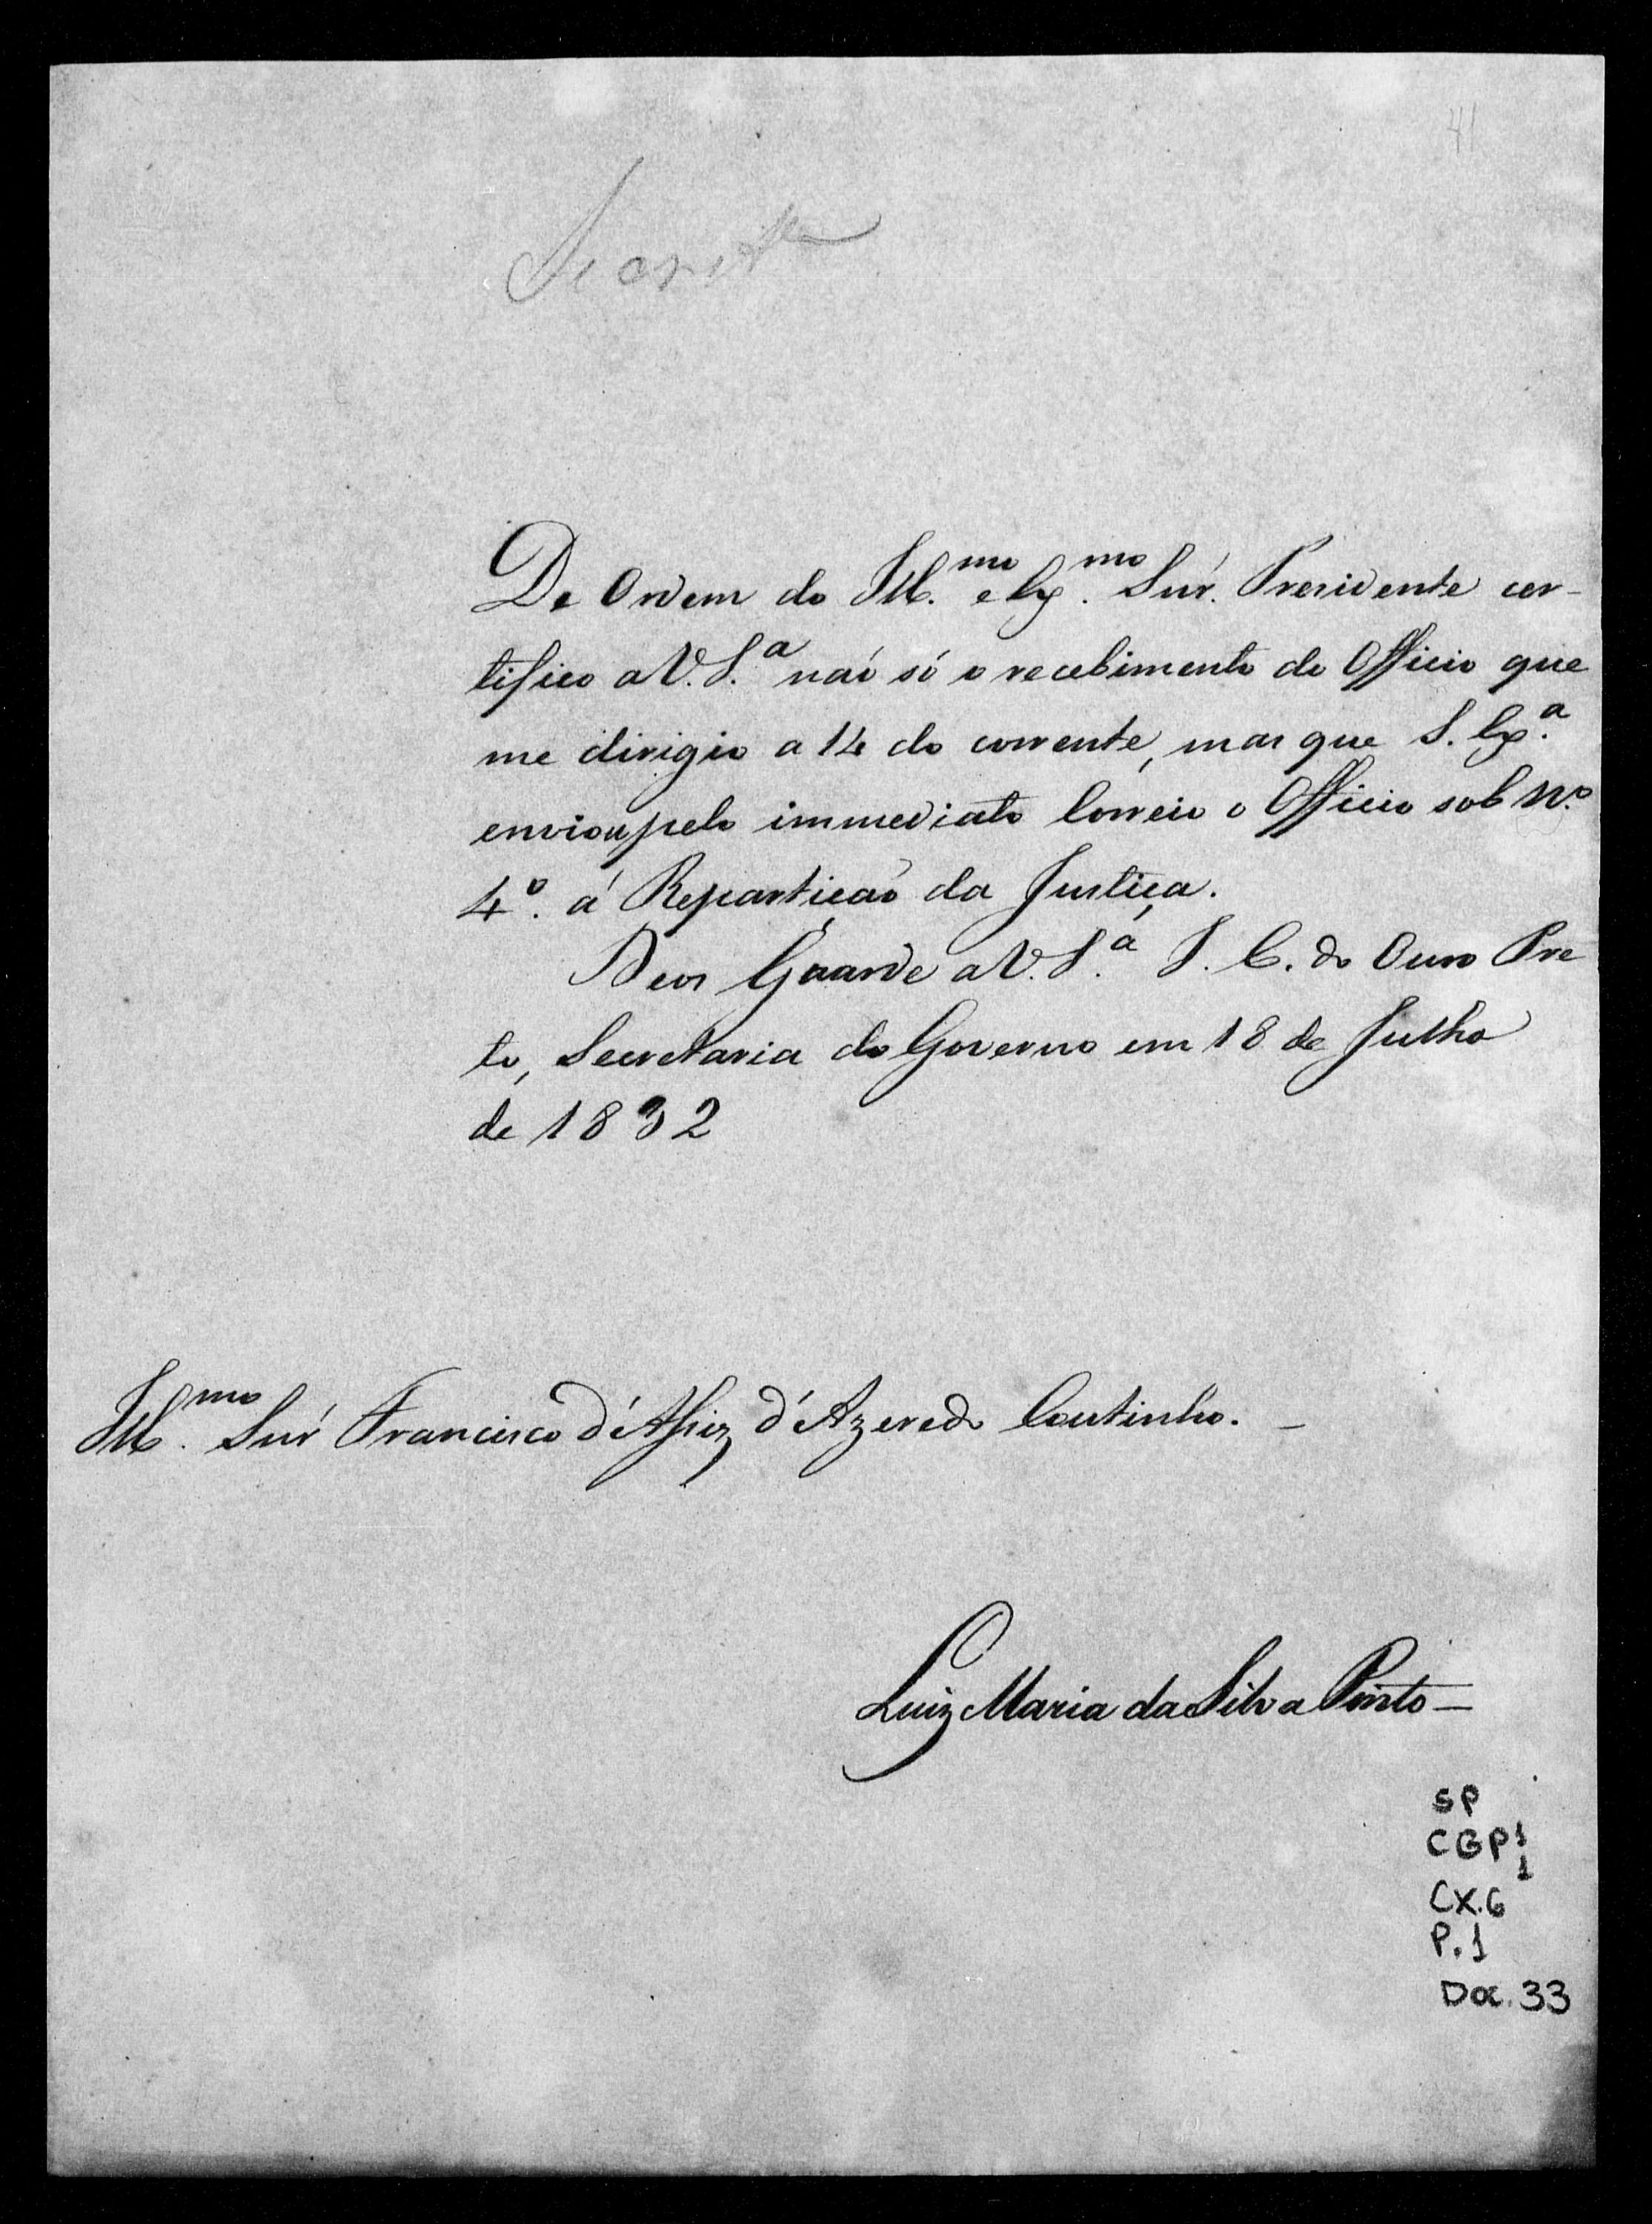 41
De Ordem do Ill.mo e Ex.mo Snr. Presidente cer-
tifico a V. S.a naó só o recebimento do Officio que
me dirigio a 14 do corrente, mas que S. Ex.a
enviou pelo immediato Correio o Officio sob N.o
4.o á Repartiçaõ da Justiça.
Deos Guarde a V. S.a I. C. do Ouro Pre
to, Secretaria do Governo em 18 de Julho
de 1832
Ill.mo Snr Francisco d'Assiz d'Azeredo Coutinho. _
Luiz Maria da Silva Pinto _
SP
CGP 1
1
CX.6
P.1
Doc. 33